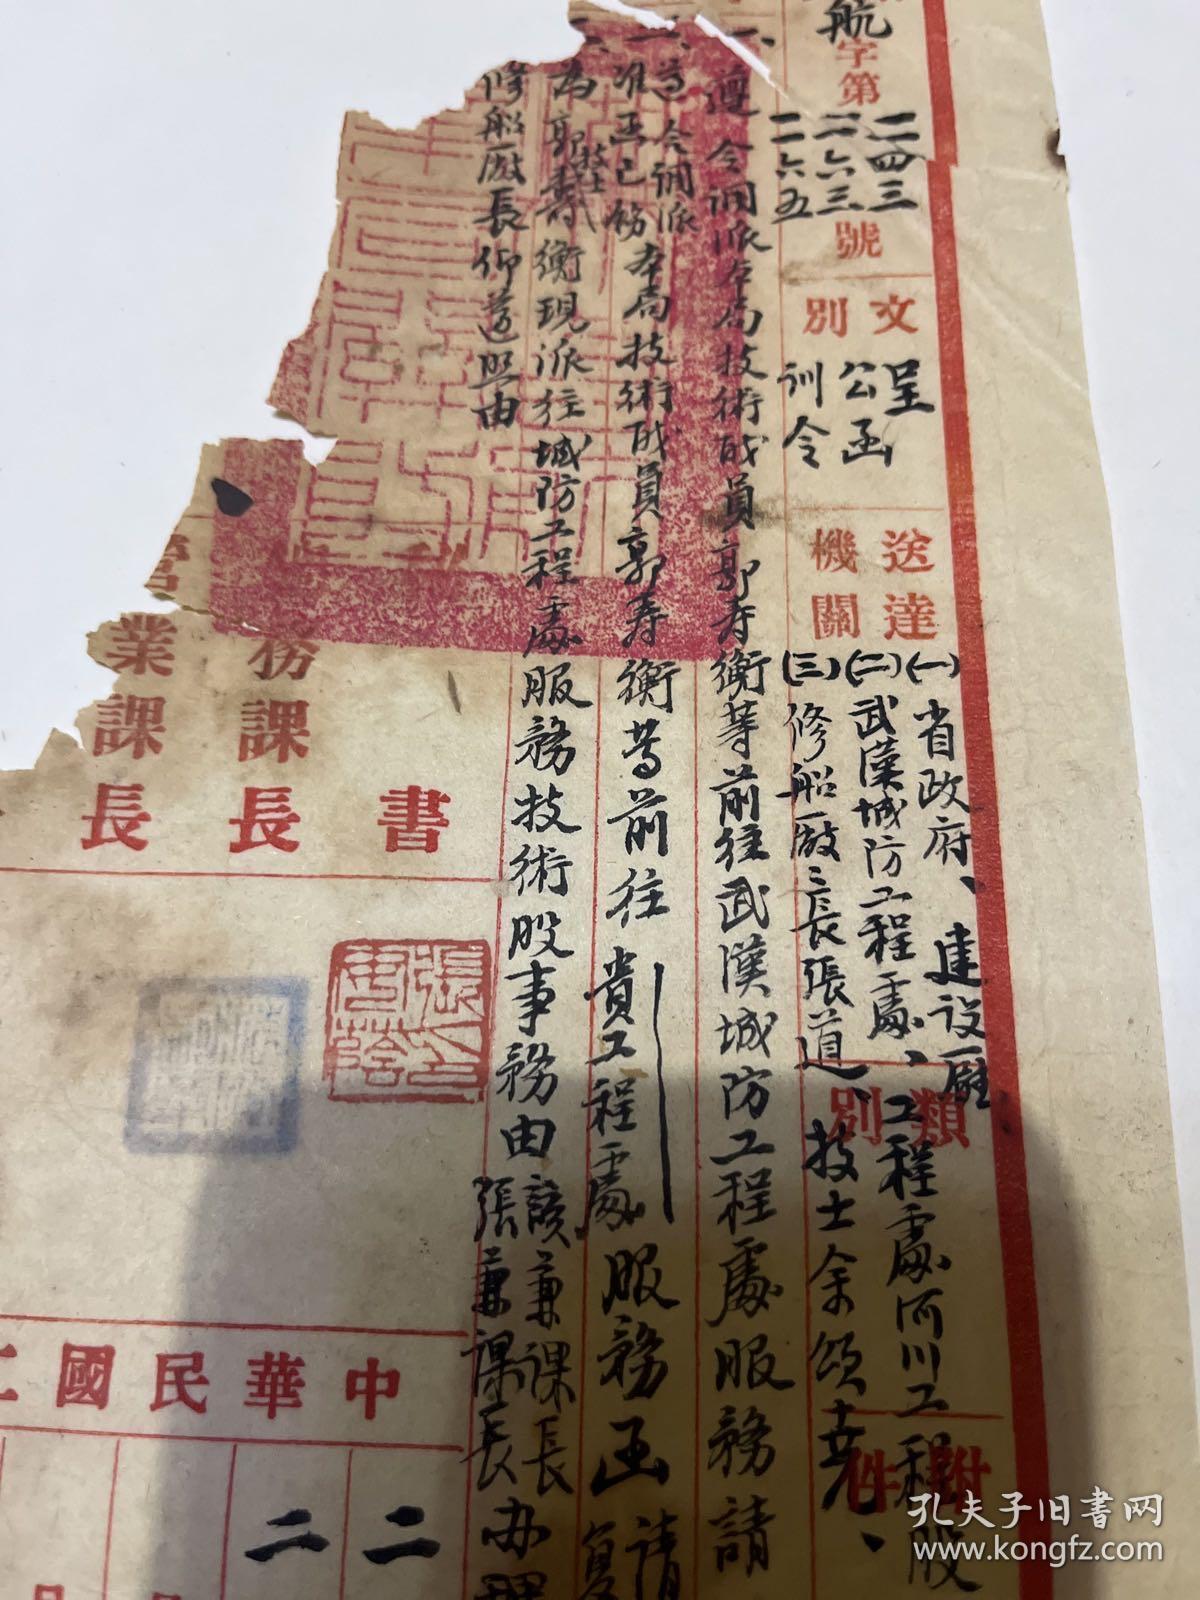 航
字第
二四三
二六三
二六五
號
文別
呈
公函
訓令
送達機關
(一)省政府、建设廳
(二)武漢城防工程處、工程處河川工程股
(三)修船廠長張道、技士余頌堯、
類別
附件
一、遵令調派本局技術員郭寿衡等前往武漢城防工程處服務請
遵令調派
准函已飭本局技術員郭寿衡等前往貴工程處服務函請
為郭壽衡現派往城防工程處服務技術股事務由該兼課長
技士
張兼課長办理
修船廠長仰遵照由
書
務課長
業課長
張
中華民國二
二
二
孔夫子旧书网
www.kongfz.com